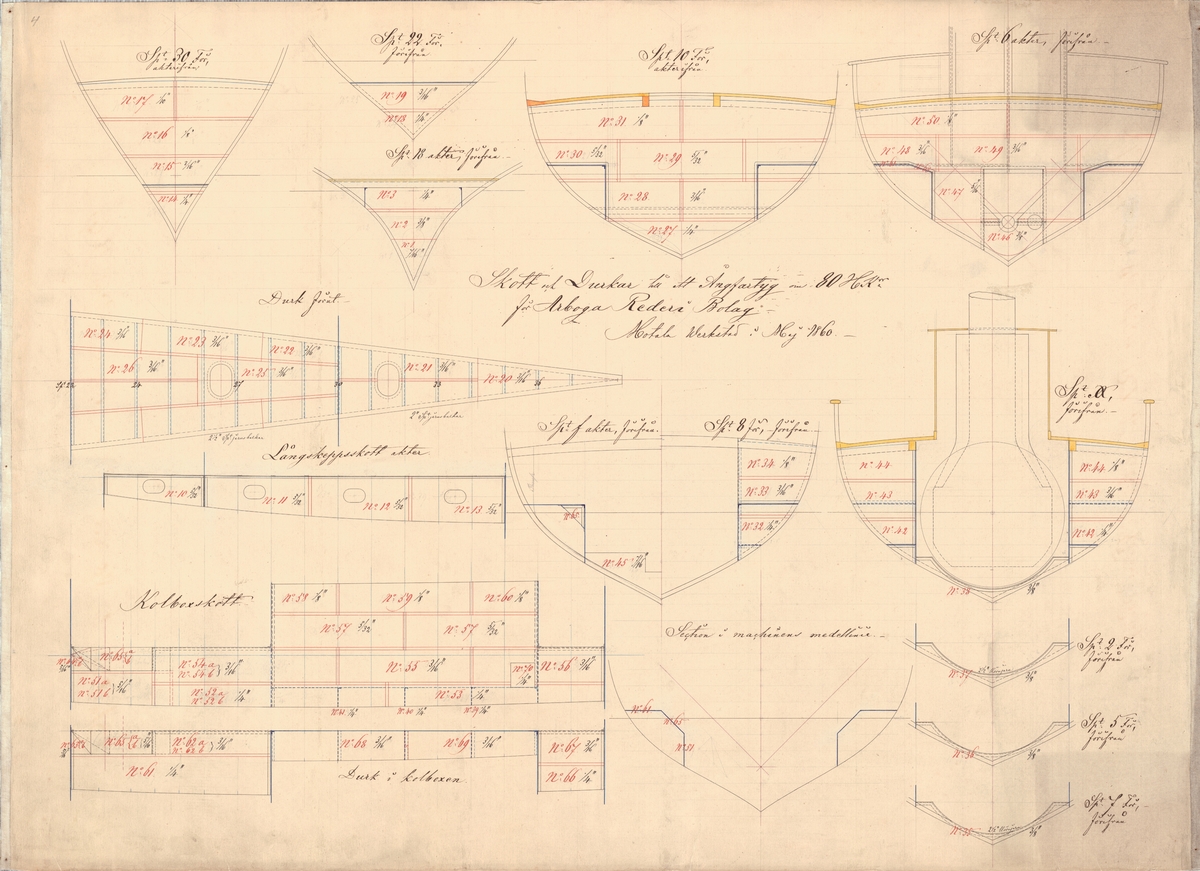 4
Spt 30 För,
akterifrån
No 17 1/8"
No 16 1/8"
No 15 3/16"
No 14 1/4"
Spt 22 För,
förifrån
No 19 3/16"
No 18 3/16"
Spt 18 akter, förifrån.
No 3 1/4"
No 2
No 1
Spt 10 För,
akterifrån
No 31 1/8"
No 30 5/32
No 29 5/32
No 28 3/16"
No 27 1/4"
Spt 6 akter, förifrån.
No 50 1/8"
No 48 3/16
No 49 3/16"
No 47
No 46
Skott och Durkar till ett Ångfartyg om 80 Hkr
för Arboga Rederi Bolag
Motala Werkstad i Maj 1860.
Durk förut.
No 24 3/16"
No 23 3/16"
No 22 3/16"
No 26 3/16"
No 25 3/16"
No 21 3/16"
No 20 3/16"
24
27
30
33
36
Långskeppsskott akter.
No 10 5/32
No 11 5/32
No 12 5/32
No 13 5/32
Spt f akter, förifrån.
No 45 3/16"
Spt 8 för, förifrån.
No 34 1/8"
No 33 3/16"
No 32 1/4"
förifrån.
No 44
No 43
No 42
No 44 1/8"
No 43 3/16"
No 42 1/4"
No 38
Kolboxskott.
No 58 1/8"
No 59 1/8"
No 60 1/8"
No 57 5/32
No 57 5/32
No 55 3/16"
No 56 3/16"
No 53 1/4"
No 54 a
No 54 b 3/16"
No 51 a
No 51 b 3/16"
No 52 a
No 52 b 1/4"
No 41 1/4"
No 40 1/4"
No 39 1/4"
No 62 a
No 62 b 3/16"
No 61 1/4"
No 68 3/16"
No 69 3/16"
No 67 3/16"
No 66 1/4"
Durk i kolboxen
Section i maschinens medellinie.
No 51
Spt 2 För,
förifrån
No 37 3/8"
Spt 5 För,
förifrån
No 36 3/8"
Spt 7 För,
förifrån
No 35 3/8"